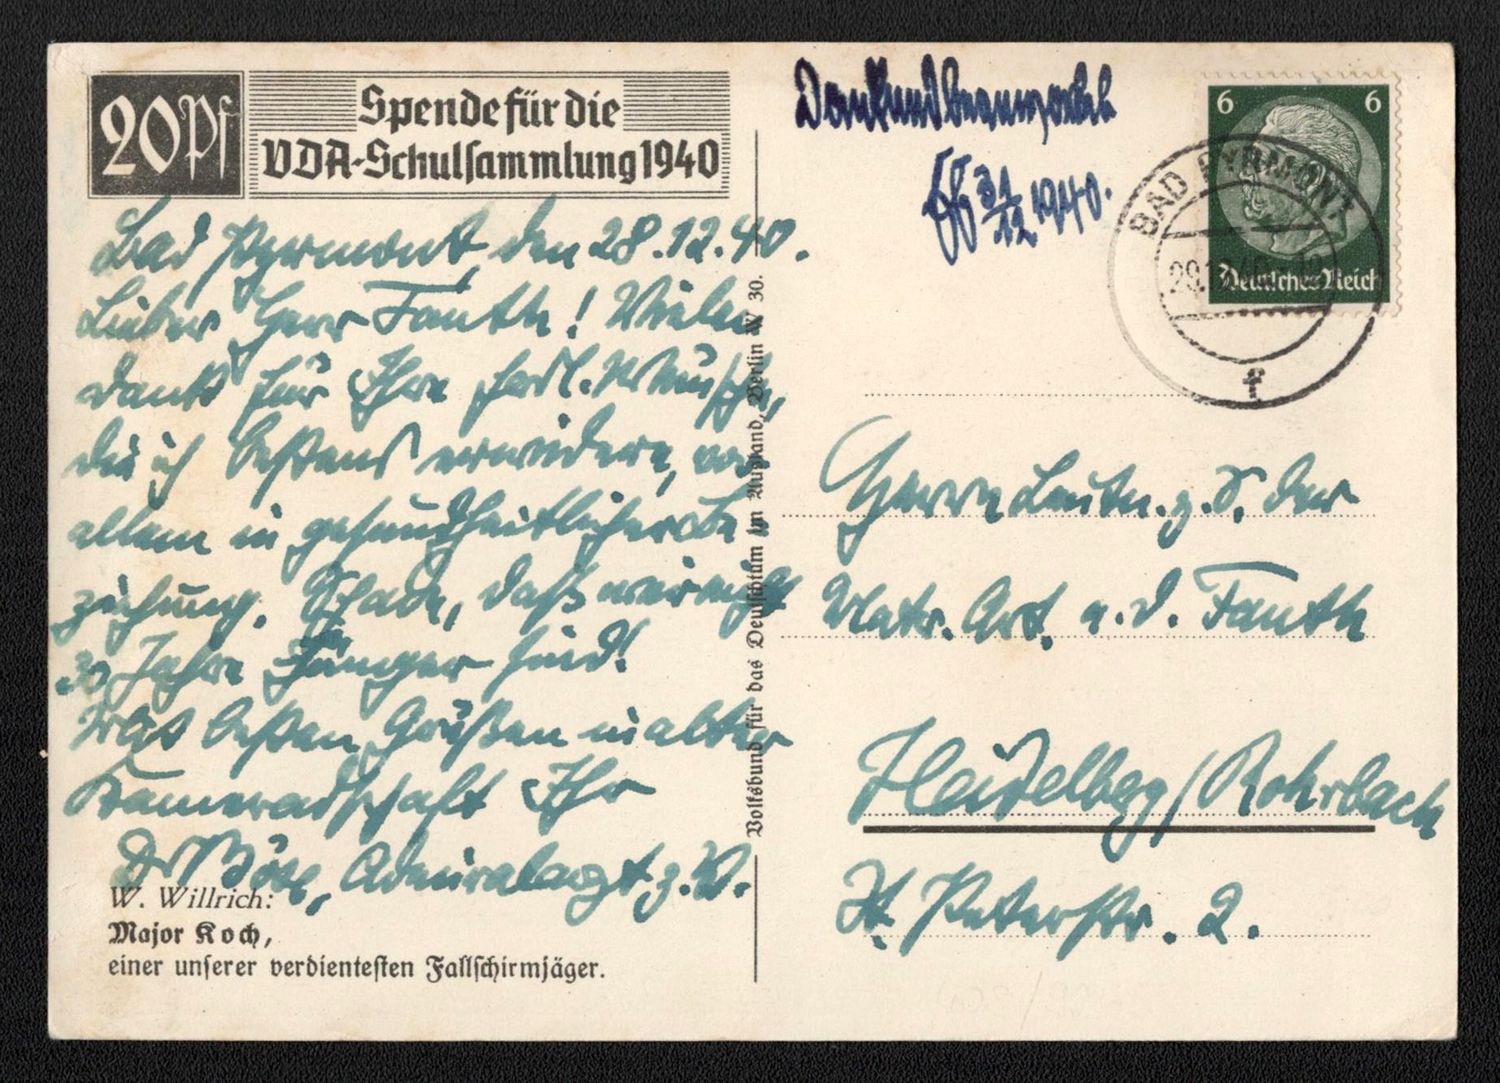 20Pf
Spende für die
VDA-Schulsammlung 1940
Bad Pyrmont, den 28.12.40.
Lieber Herr Fauth! Vielen
Dank für Ihre frdl. Wünsche,
die ich bestens erwidere, vor
allem in gesundheitlicher Be
ziehung. Schade, daß wir nicht
30 Jahre jünger sind!
Mit besten Grüßen in alter
Kameradschaft Ihr
Dr. Böse, Admiralarzt z. V.
W. Willrich:
Major Koch,
einer unserer verdientesten Fallschirmjäger.
Volksbund für das Deutschtum im Ausland, Berlin W 30.
Dankend beantwortet
31/12 1940.
6 6
Deutsches Reich
BAD PYRMONT
29.12.40
f
Herrn Leutn. z. S. der
Matr. Art. a. D. Fauth
Heidelberg/Rohrbach
St. Peterstr. 2.